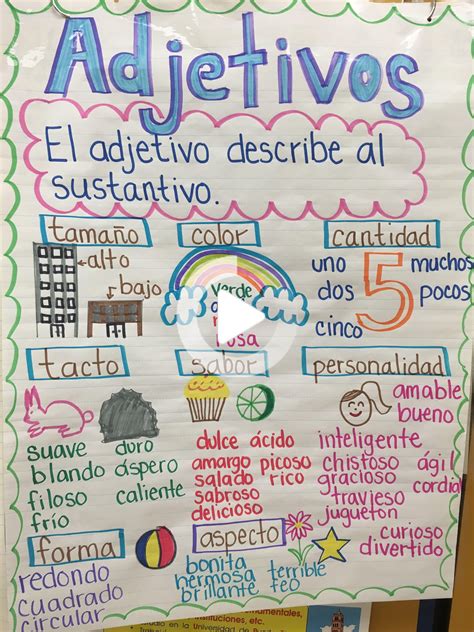 Adjetivos
El adjetivo describe al
sustantivo.
tamaño
alto
bajo
color
verde
rosa
cantidad
uno
dos
cinco
5
muchos
pocos
tacto
suave duro
blando áspero
filoso caliente
frío
sabor
dulce ácido
amargo picoso
salado rico
sabroso
delicioso
personalidad
amable
bueno
inteligente
chistoso ágil
gracioso cordial
travieso
juguetón
curioso
divertido
forma
redondo
cuadrado
circular
aspecto
bonita
hermosa terrible
brillante feo